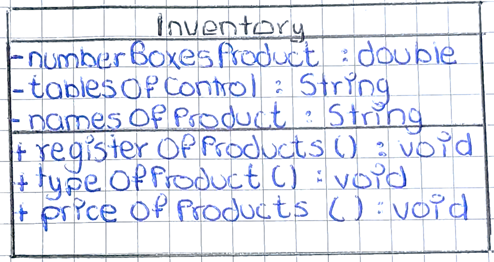 Inventory
-numberBoxesProduct : double
-tablesOfControl : String
-namesOfProduct : String
+ registerOfProducts() : void
+ typeOfProduct() : void
+ priceOfProducts () : void